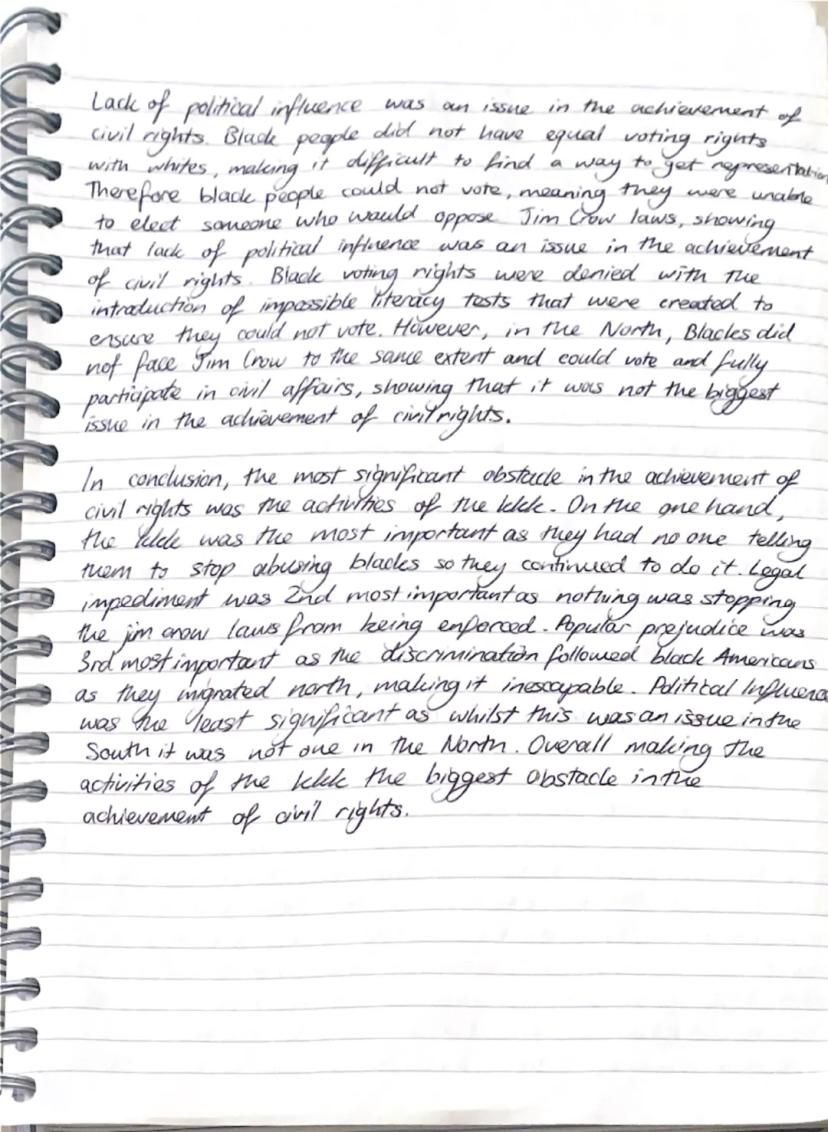 Lack of political influence was an issue in the achievement of
civil rights. Black people did not have equal voting rights
with whites, making it difficult to find a way to get representation
Therefore black people could not vote, meaning they were unable
to elect someone who would oppose Jim Crow laws, showing
that lack of political influence was an issue in the achievement
of civil rights. Black voting rights were denied with the
introduction of impossible literacy tests that were created to
ensure they could not vote. However, in the North, Blacks did
not face Jim Crow to the same extent and could vote and fully
participate in civil affairs, showing that it was not the biggest
issue in the achievement of civil rights.
In conclusion, the most significant obstacle in the achievement of
civil rights was the activities of the kkk. On the one hand,
the kkk was the most important as they had no one telling
them to stop abusing blacks so they continued to do it. Legal
impediment was 2nd most important as nothing was stopping
the jim crow laws from being enforced. Popular prejudice was
3rd most important as the discrimination followed black Americans
as they migrated north, making it inescapable. Political Influence
was the least significant as whilst this was an issue in the
South it was not one in the North. Overall making the
activities of the kkk the biggest obstacle in the
achievement of civil rights.